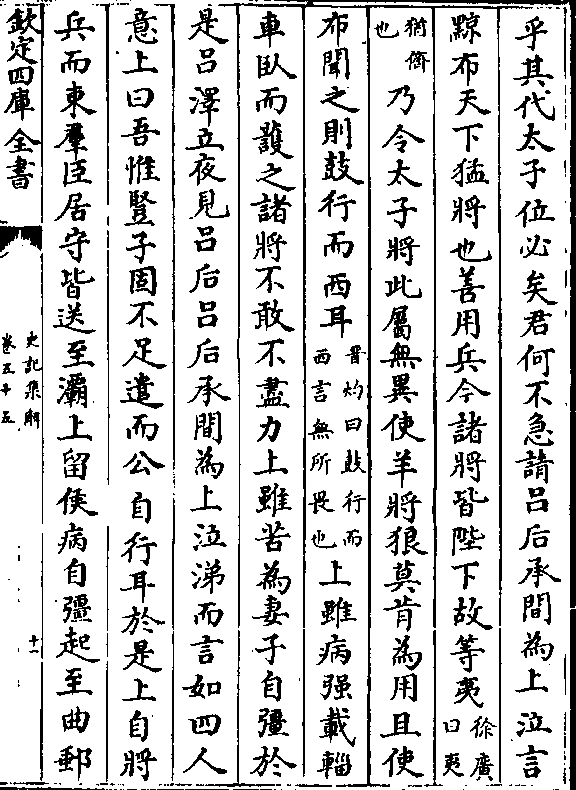 乎其代太子位必矣君何不急請吕后承間為上泣言
黥布天下猛將也善用兵今諸將皆陛下故等夷徐廣曰夷
猶儕也乃令太子將此屬無異使羊將狼莫肯為用且使
布聞之則鼓行而西耳晉灼曰鼓行而西言無所畏也上雖病强載輜
車臥而護之諸將不敢不盡力上雖苦為妻子自彊於
是吕澤立夜見吕后吕后承間為上泣涕而言如四人
意上曰吾惟豎子固不足遣而公自行耳於是上自將
兵而東羣臣居守皆送至灞上留侯病自彊起至曲郵
欽定四庫全書
史記集解
卷五十五
十一